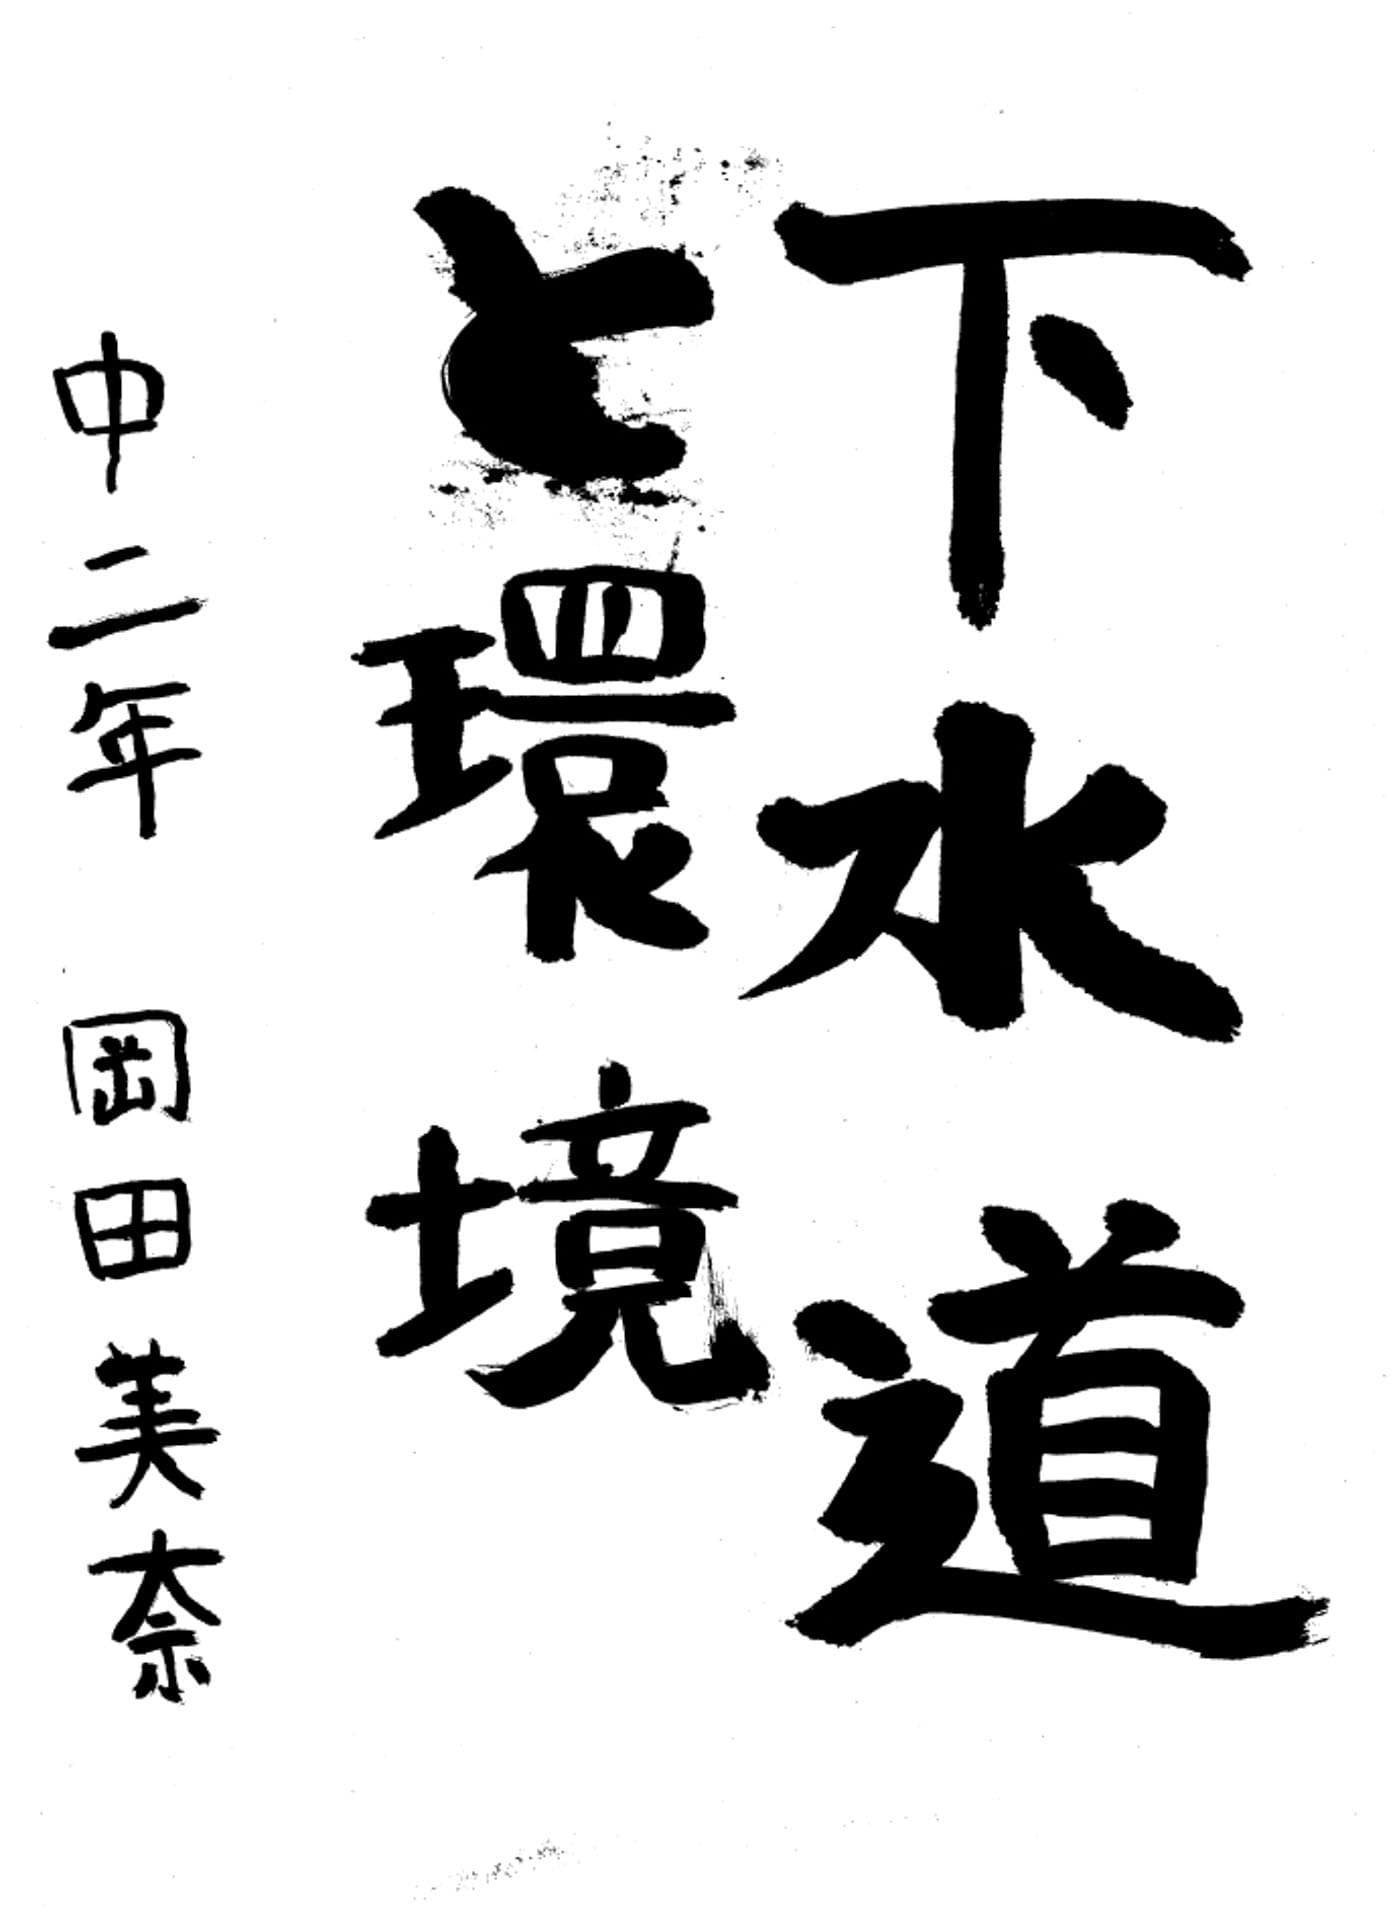 下水道
と環境
中二年 岡田美奈